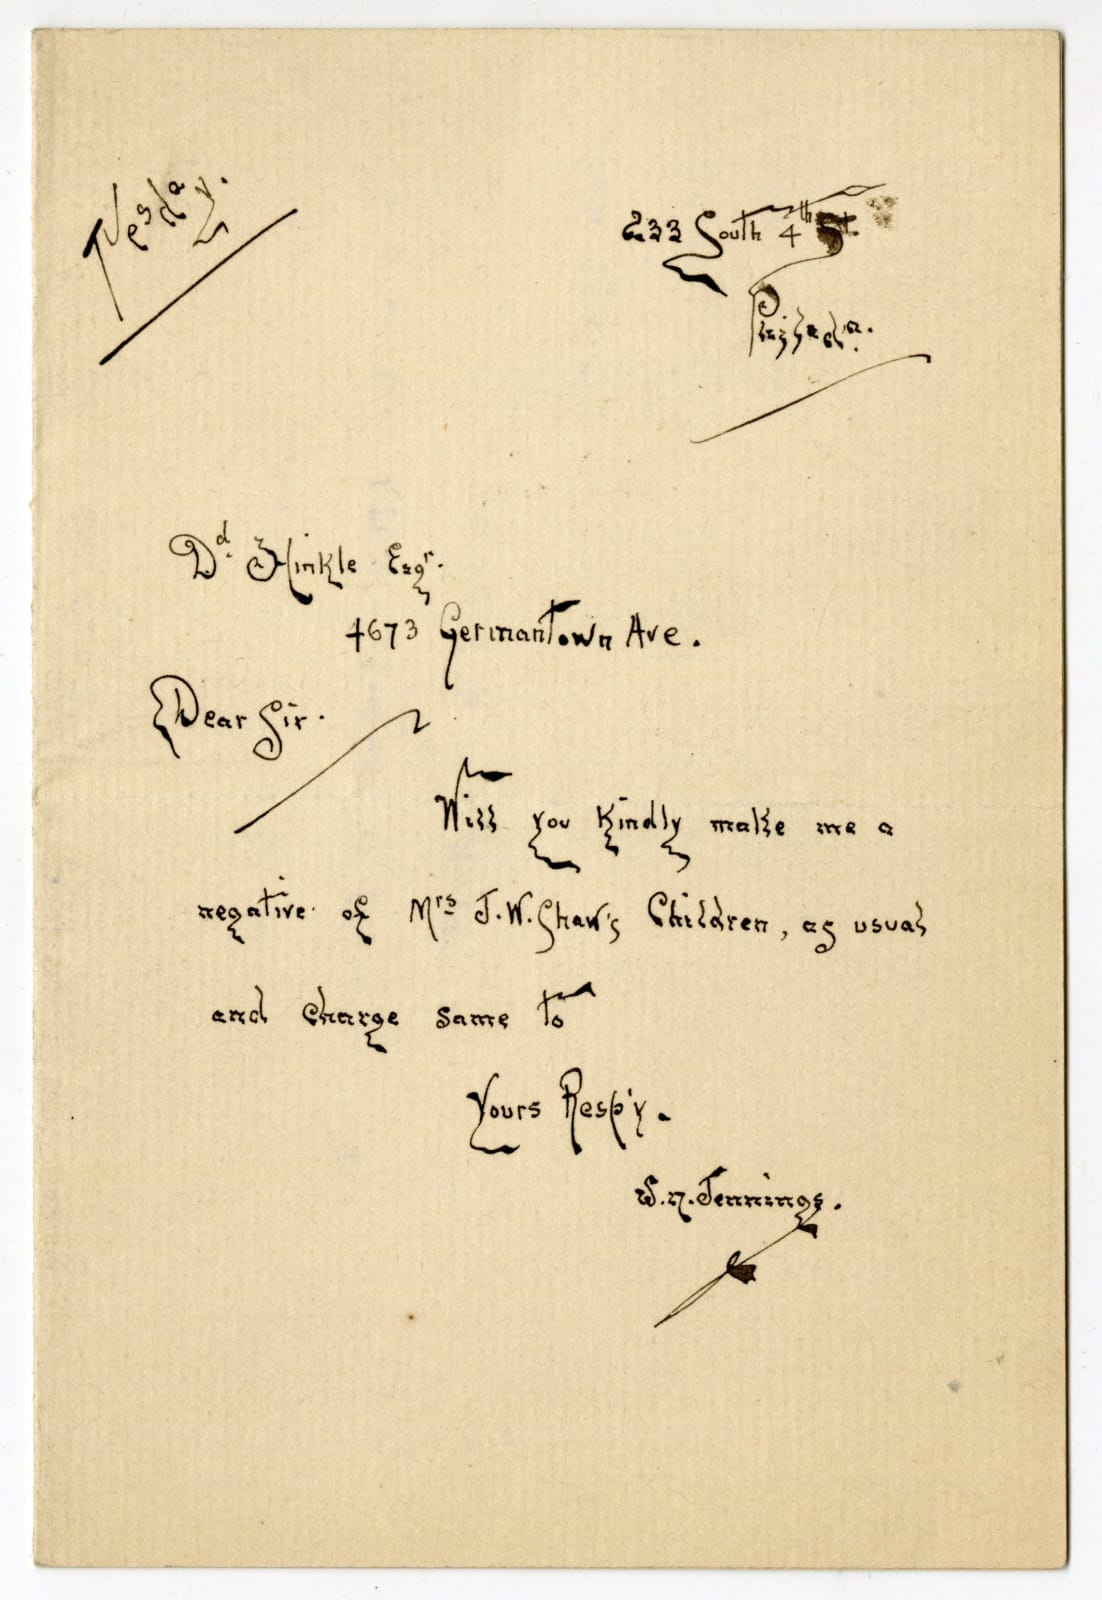 Tuesday.
233 South 4th St.
Philada.
Dd. Hinkle Esqr.
4673 Germantown Ave.
Dear Sir.
Will you kindly make me a
negative of Mrs J. W. Shaw's Children, as usual
and charge same to
Yours Resp'y.
W. N. Jennings.